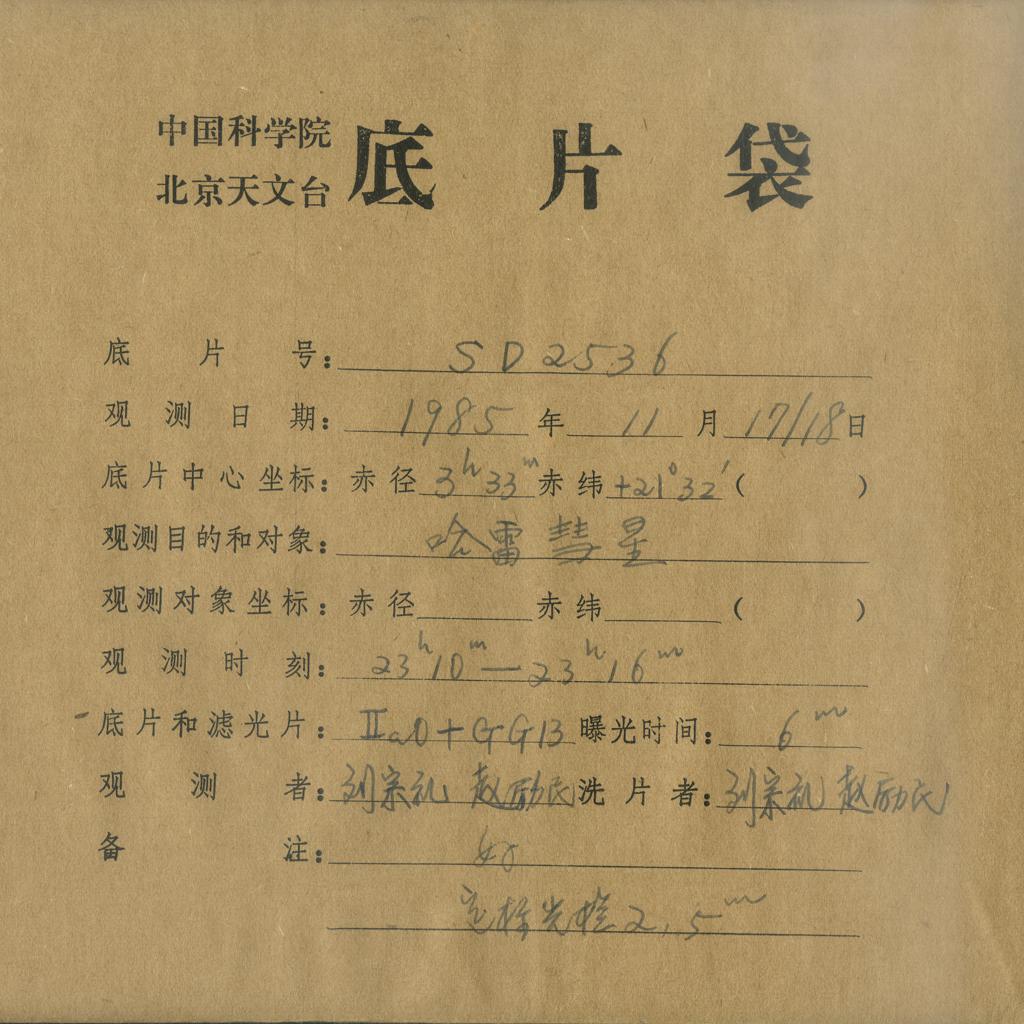 中国科学院
北京天文台
底片袋
底片号：SD2536
观测日期：1985年11月17/18日
底片中心坐标：赤径3h33m赤纬+21°32′（ ）
观测目的和对象：哈雷彗星
观测对象坐标：赤径 赤纬 （ ）
观测时刻：23h10m—23h16m
底片和滤光片：IIaO+GG13 曝光时间：6m
观测者：刘宗礼 赵励民 洗片者：刘宗礼 赵励民
备注：好
定标光楔2.5m